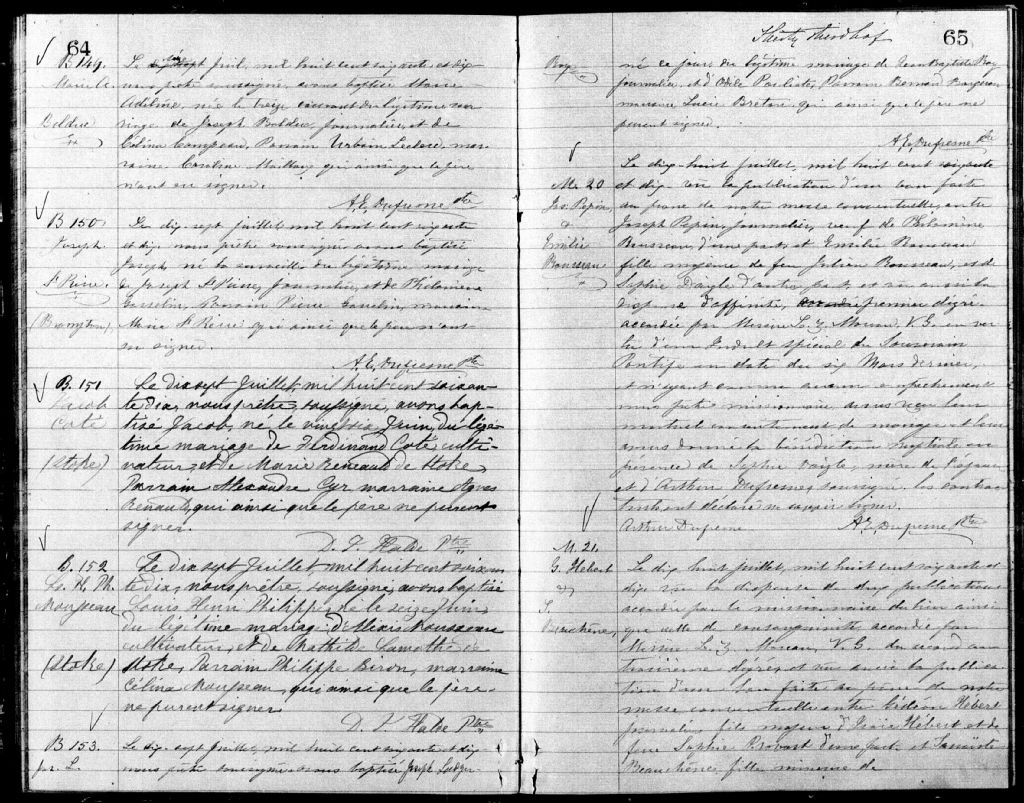 64
B 149.
Marie A.
Bolduc
Le dix sept Juil, mil huit cent soixante et dix
nous prêtre soussigné, avons baptisé Marie
Adelme, née le treize courant du légitime ma-
riage de Joseph Bolduc, journalier, et de
Célina Campeau, Parrain Urbain Leclerc, mar-
raine Caroline qui ainsi que le père
n'ont su signer.
A. E. Dufresne Ptre
B 150
Joseph
St Pierre.
(Brompton)
Le dix sept juillet mil huit cent soixante
et dix nous prêtre soussigné avons baptisé
Joseph né la surveille, du légitime mariage
de Joseph St Pierre, journalier, et de Philomène
Gosselin, Parrain Pierre Gosselin, marraine
Marie St Pierre qui ainsi que le père n'ont
su signer.
A. E. Dufresne Ptre
B. 151
Jacob
Coté
(Stoke)
Le dix sept Juillet, mil huit cent soixan-
te dix, nous prêtre, soussigné, avons bap-
tisé Jacob, né le vingt six Juin, du légi-
time mariage de Ferdinand Coté culti-
vateur, et de Marie Renaud de Stoke
Parrain Alexandre Cyr marraine Agnes
Renaud, qui ainsi que le père ne purent
signer.
D. F. Halde Ptre
B. 152
Ls. H. Ph.
Rousseau
(Stoke)
Le dix sept Juillet, mil huit cent soixan
te dix, nous prêtre, soussigné, avons baptisé
Louis Henri Philippe, né le seize Juin
du légitime mariage d'Alexis Rousseau
cultivateur, et de Mathilde Lamothe de
Stoke, Parrain Philippe Biron, marraine
Célina Rousseau, qui ainsi que le père
ne purent signer
D. F. Halde Ptre
B 153.
Jos. L.
Le dix sept Juillet, mil huit cent soixante et dix
nous prêtre soussigné avons baptisé Joseph Ludger
Thirty third leaf
65
Roy
né ce jour du légitime mariage de Jean Baptiste Roy
journalier, et d'Odile Parrain Bernard
marraine Lucie Breton, qui ainsi que le père ne
purent signer.
A. E. Dufresne Ptre
M. 20
Jos. Pepin
&
Emilie
Rousseau
Le dix-huit Juillet, mil huit cent soixante
et dix vu la publication d'un ban faite
au prone de notre messe conventuelle, entre
Joseph Pepin, journalier, veuf de Philomène
Rousseau, d'une part, et Emilie Rousseau
fille majeure de feu Julien Rousseau, et de
Sophie Daigle d'autre part, et vu aussi la
dispense d'affinité, premier degré
accordée par Messire L. Z. Moreau, V. G. en ver
tu d'un Indult spécial du Souverain
Pontife en date du six Mars dernier,
et n'ayant connu aucun empêchement
nous prêtre missionnaire, avons reçu leur
mutuel consentement de mariage et leur
avons donné la bénédiction nuptiale en
présence de Sophie Daigle, mère de l'épouse
et d'Arthur Dufresne soussigné, les contrac
tants ont déclaré ne savoir signer.
Arthur Dufresne A. E. Dufresne, Ptre
M. 21.
G. Hébert
&
S.
Beauchêne
Le dix huit juillet, mil huit cent soixante et
dix, vu la dispense de deux publications
accordée par le missionnaire du lieu ainsi
que celle de consanguinité accordée par
Messire L. Z. Moreau, V. G. du second au
troisième degré, et vu aussi la publica-
tion d'un ban faite au prone de notre
messe conventuelle entre Gédéon Hébert
journalier fils majeur d'Isaie Hébert et de
feue Sophie Provost d'une part, et
Beauchêne, fille mineure de